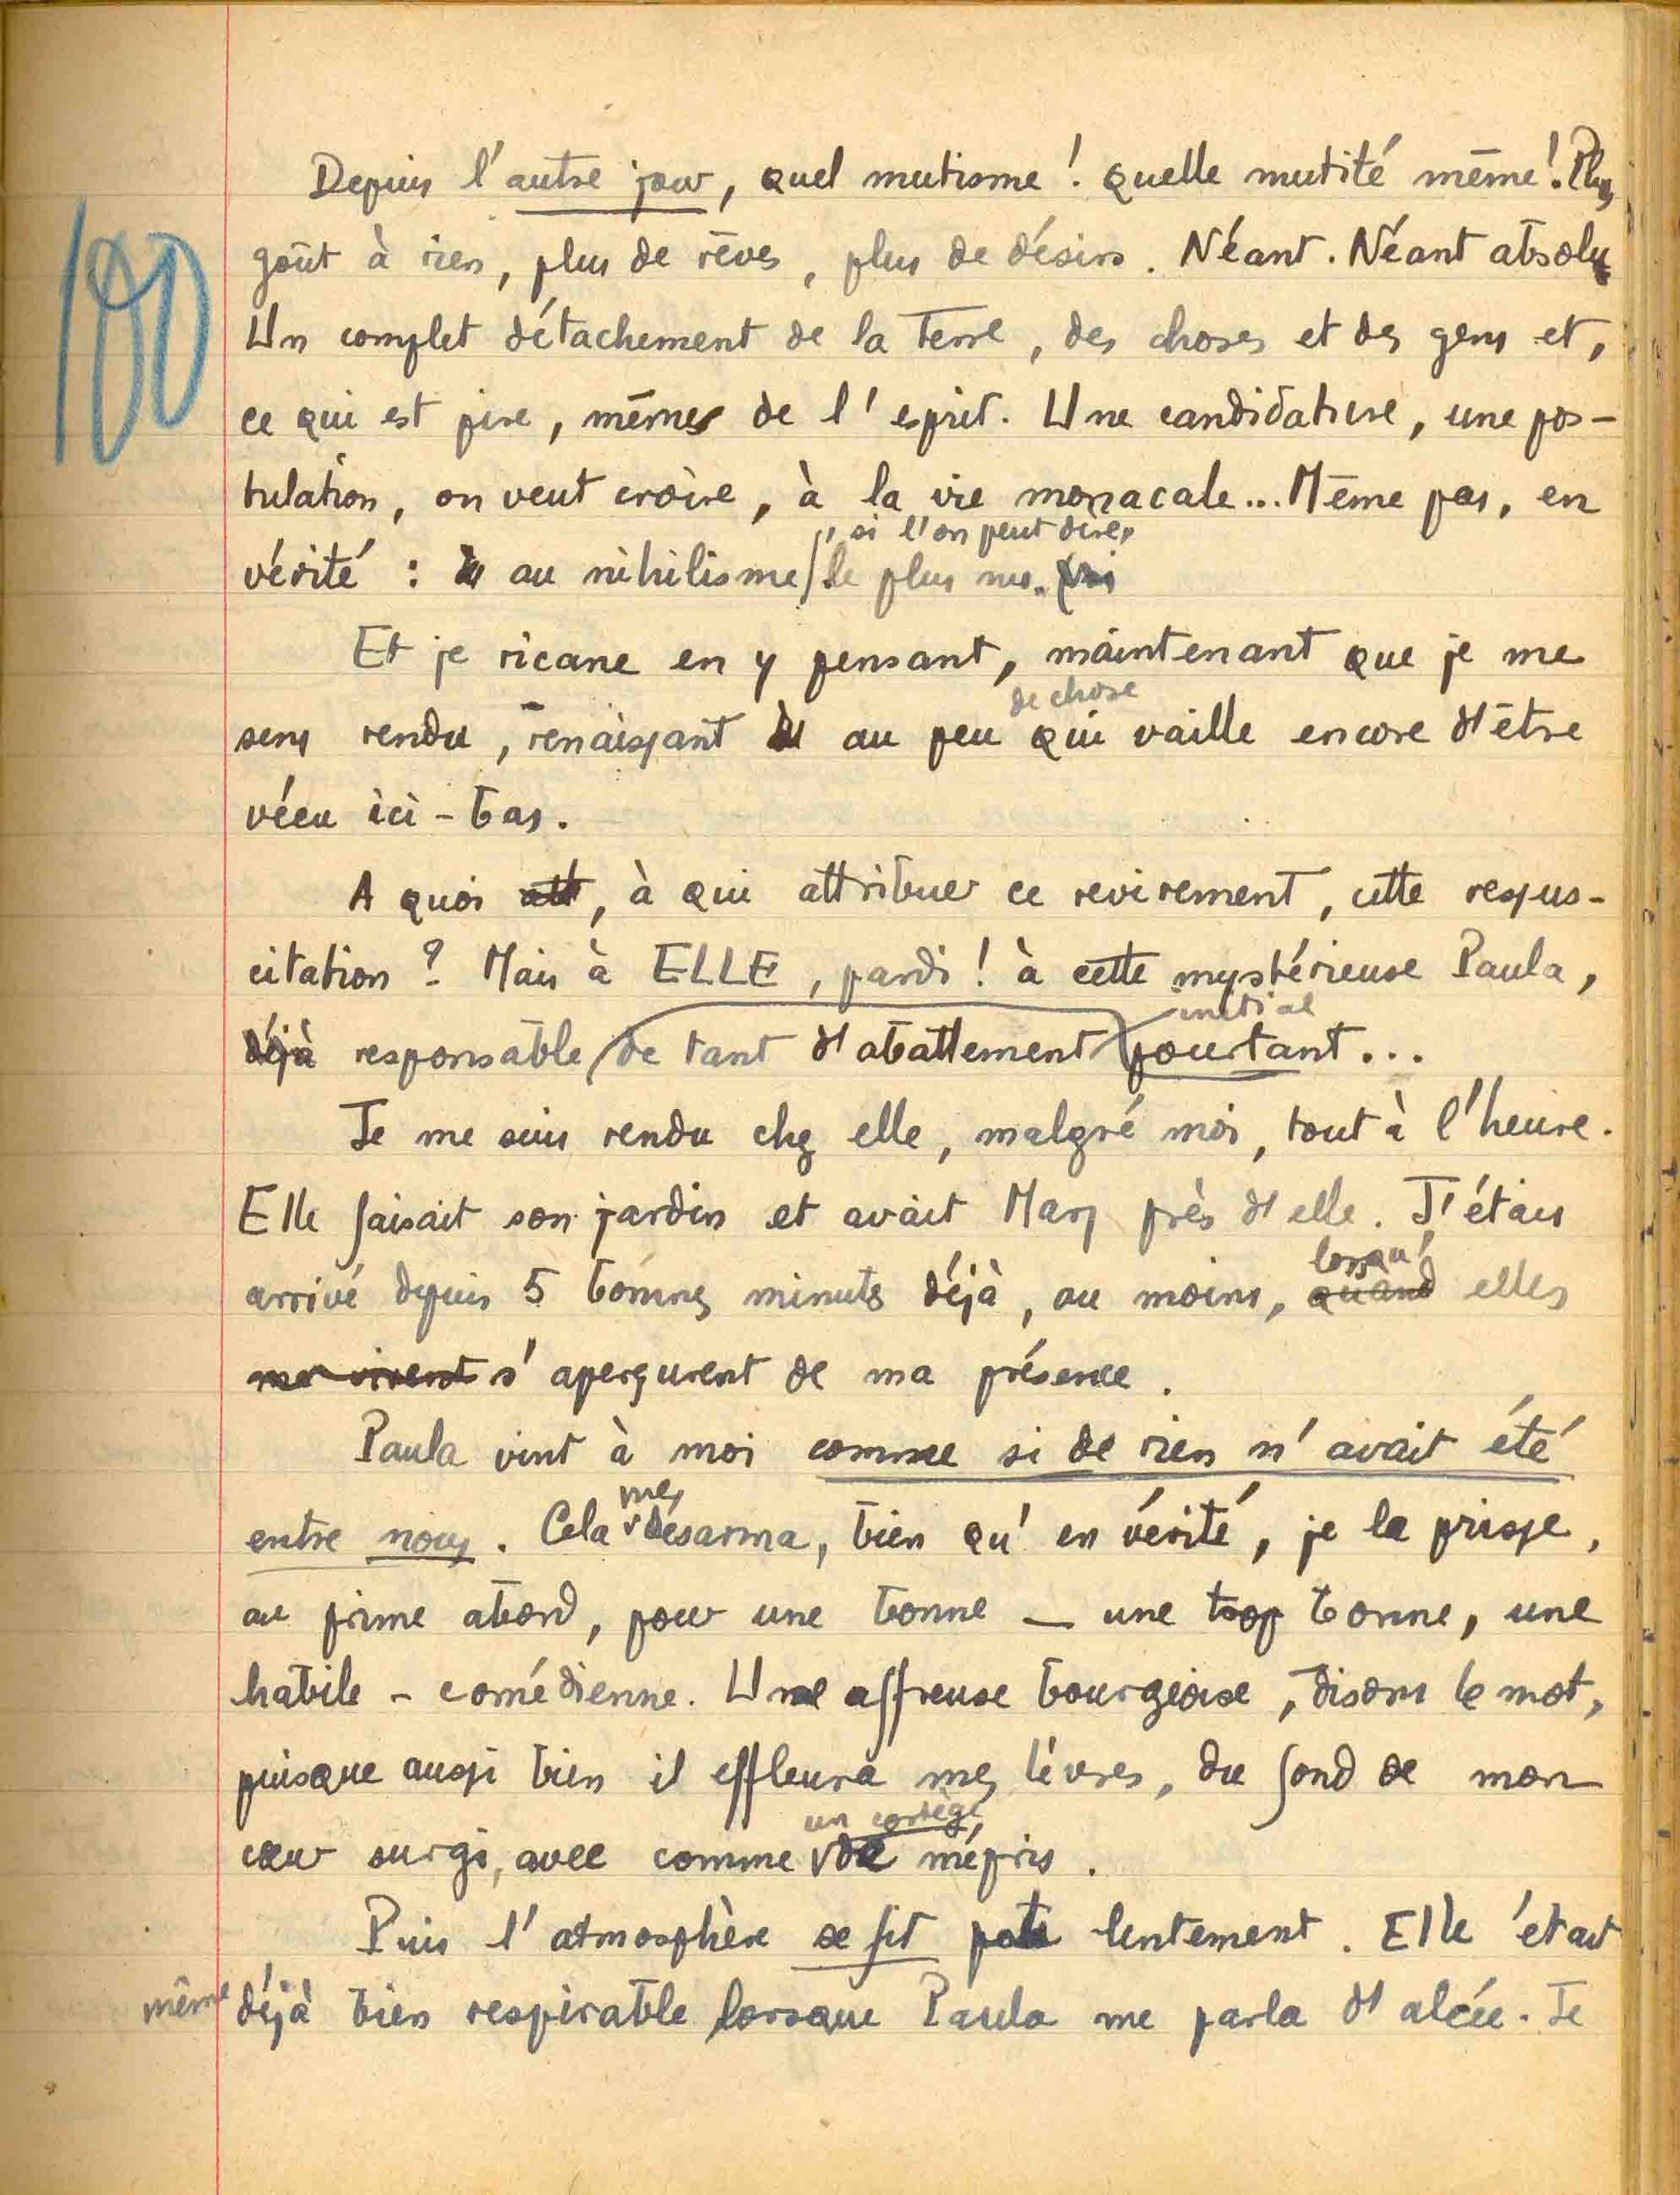 100
Depuis l'autre jour, quel mutisme ! quelle mutité même ! Plus
goût à rien, plus de rêves, plus de désirs. Néant. Néant absolu
Un complet détachement de la Terre, des choses et des gens et,
ce qui est pire, même de l'esprit. Une candidature, une pos-
tulation, on veut croire, à la vie monacale... Même pas, en
, si l'on peut dire,
vérité : au nihilisme le plus nu.
Et je ricane en y pensant, maintenant que je me
de chose
sens rendu, renaissant au peu qui vaille encore d'être
vécu ici-bas.
A quoi att, à qui attribuer ce revirement, cette ressus-
citation ? Mais à ELLE, pardi ! à cette mystérieuse Paula,
initial
déjà responsable de tant d'abattement pourtant...
Je me suis rendu chez elle, malgré moi, tout à l'heure.
Elle faisait son jardin et avait Mary près d'elle. J'étais
lorsqu'
arrivé depuis 5 bonnes minutes déjà, au moins, quand elles
me virent s'aperçurent de ma présence.
Paula vint à moi comme si de rien n'avait été
me
entre nous. Cela désarma, bien qu'en vérité, je la prisse,
au prime abord, pour une bonne — une trop bonne, une
habile - comédienne. Une affreuse bourgeoise, disons le mot,
puisque aussi bien il effleura mes lèvres, du fond de mon
un cortège
cœur surgi, avec comme de mépris.
Puis l'atmosphère se fit lentement. Elle était
même déjà bien respirable lorsque Paula me parla d'alcée. Je